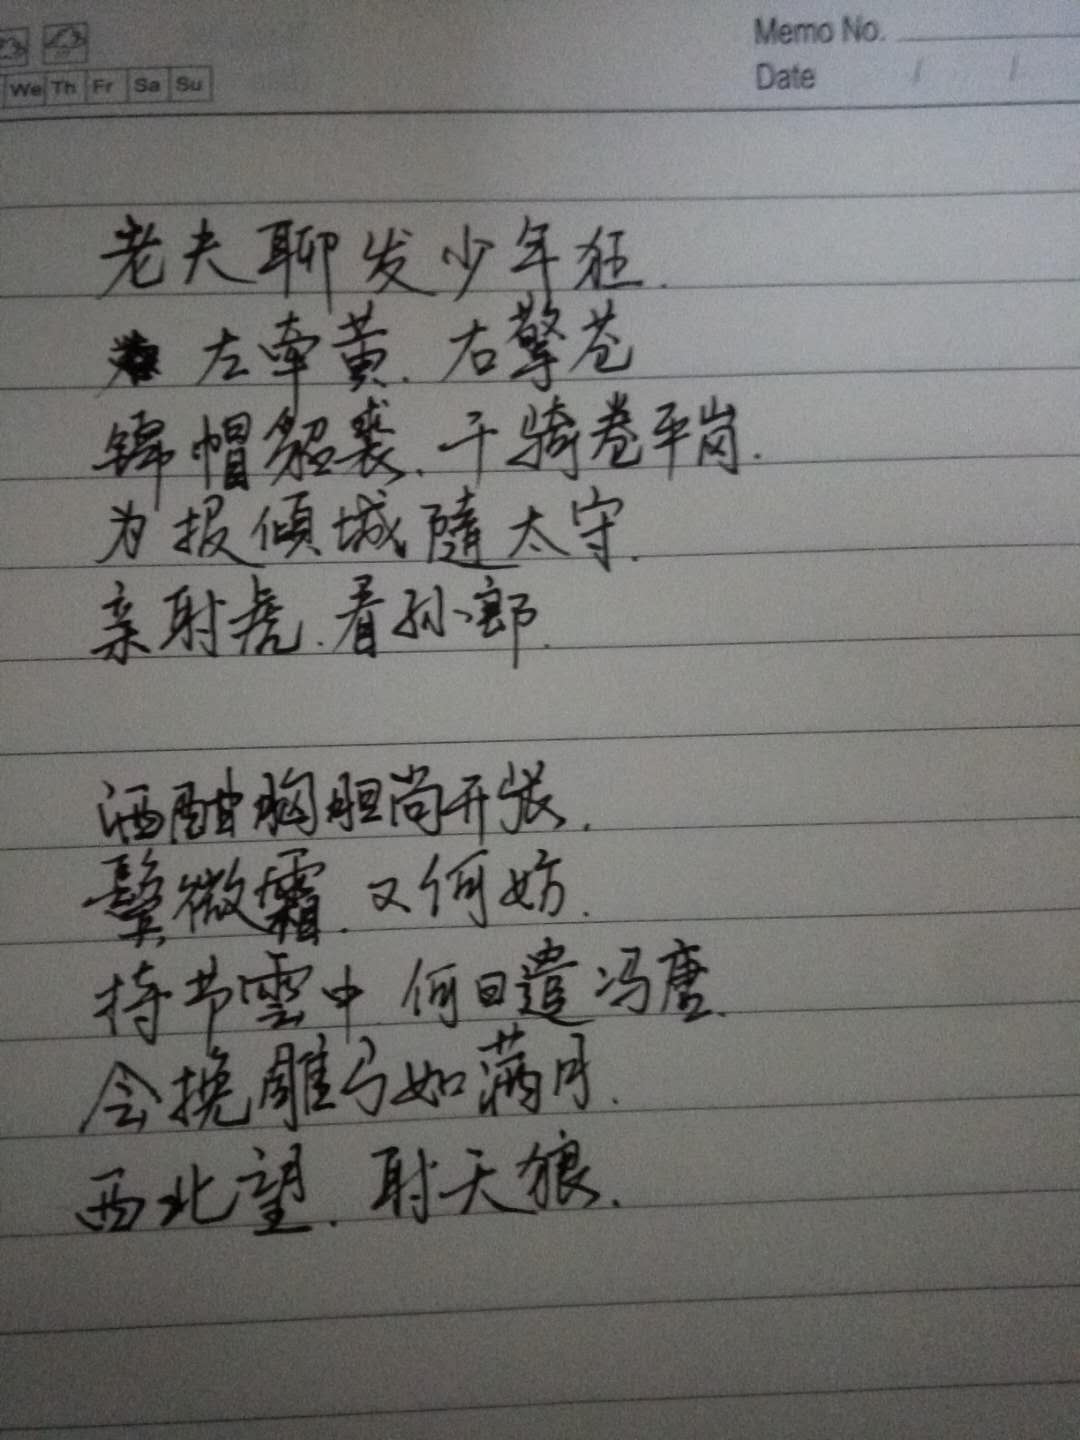 Memo No.
We Th Fr Sa Su
Date / /
老夫聊发少年狂.
左牵黄.右擎苍
锦帽貂裘.千骑卷平岗.
为报倾城隨太守.
亲射虎.看孙郎.
酒酣胸胆尚开张.
鬓微霜.又何妨.
持节雲中 何日遣冯唐.
会挽雕弓如满月.
西北望.射天狼.